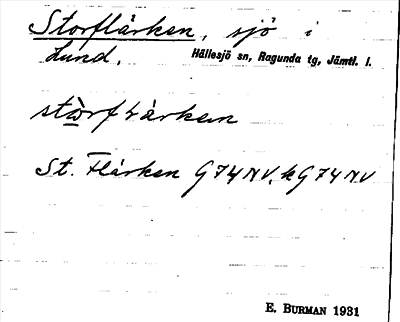 Storflårken, sjö i
Lund. Hällesjö sn, Ragunda tg, Jämtl. l.
stòrfłårken
St. Flårken G74NV, k G74NV
E. BURMAN 1931